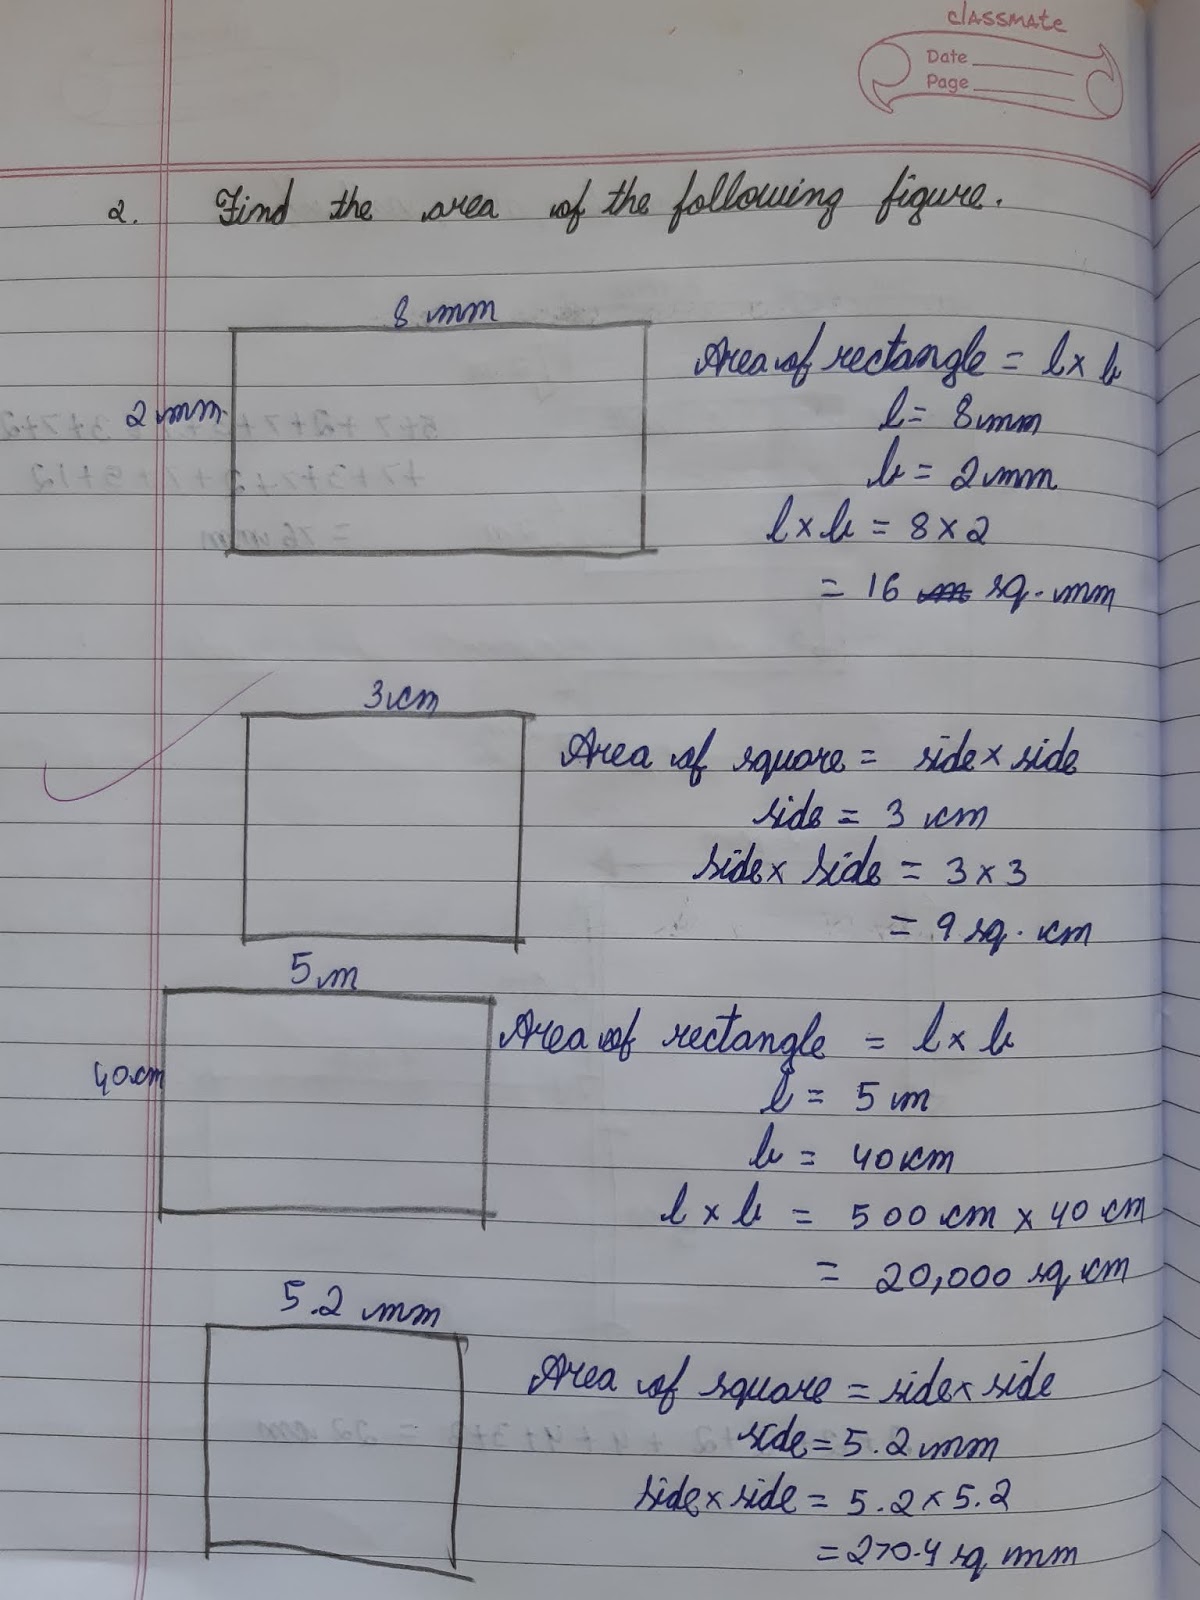 classmate
Date
Page
2. Find the area of the following figure.
8 mm
2 mm
Area of rectangle = l x b
l = 8 mm
b = 2 mm
l x b = 8 x 2
= 16 sq. mm
3 cm
Area of square = side x side
side = 3 cm
side x side = 3 x 3
= 9 sq. cm
5 m
40 cm
Area of rectangle = l x b
l = 5 m
b = 40 cm
l x b = 500 cm x 40 cm
= 20,000 sq cm
5.2 mm
Area of square = side x side
side = 5.2 mm
side x side = 5.2 x 5.2
= 270.4 sq mm